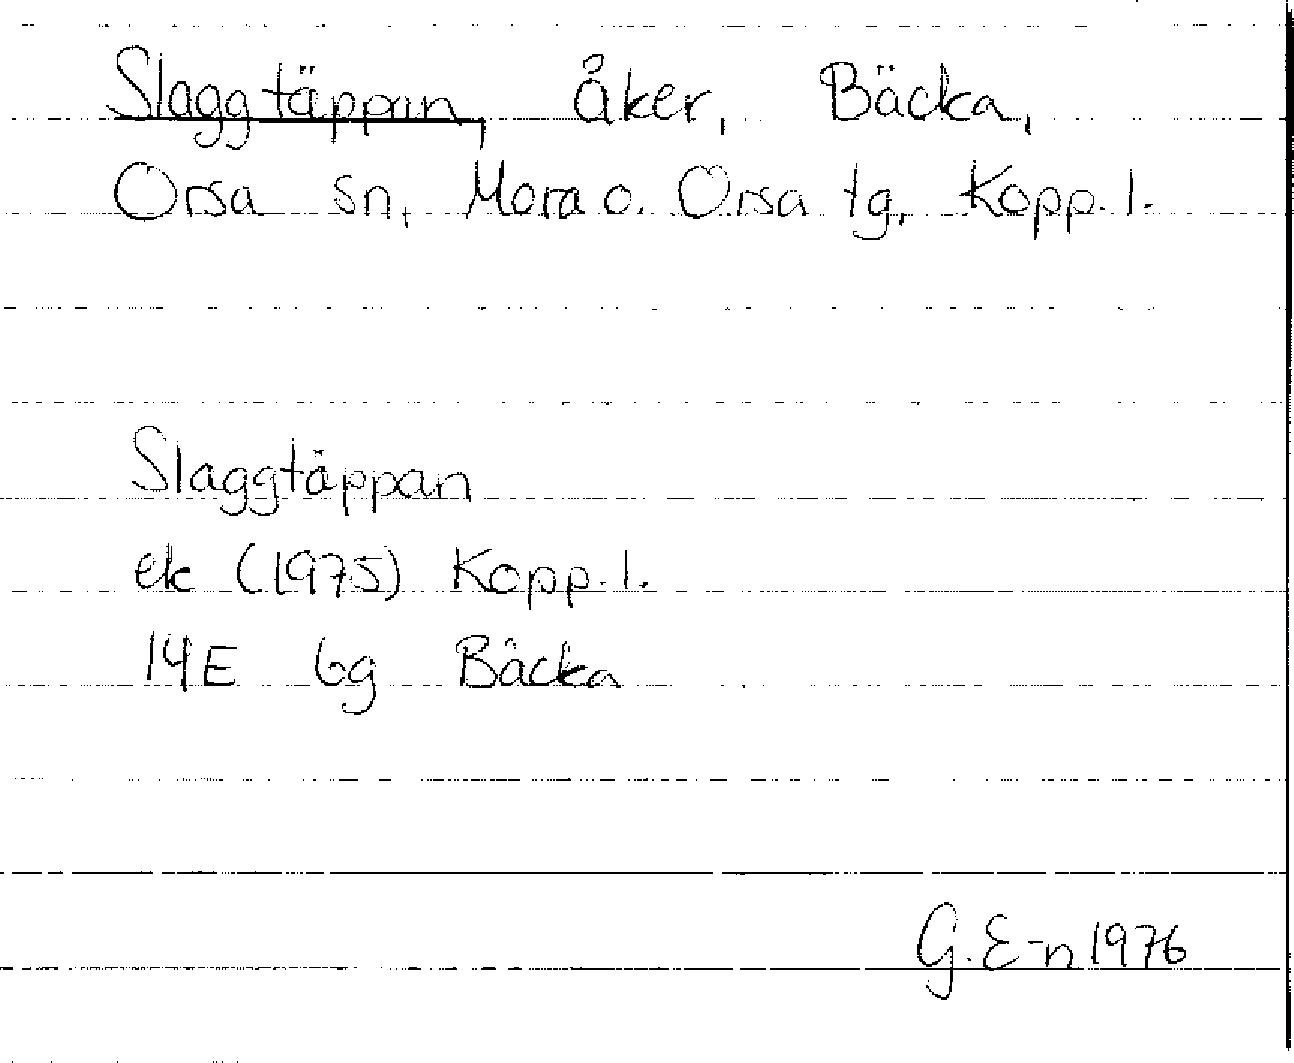 Slaggtäppan, åker, Bäcka,
Orsa sn, Mora o. Orsa tg, Kopp. l.
Slaggtäppan
ek (1975) Kopp. l.
14E 6g Bäcka
G. E-n 1976